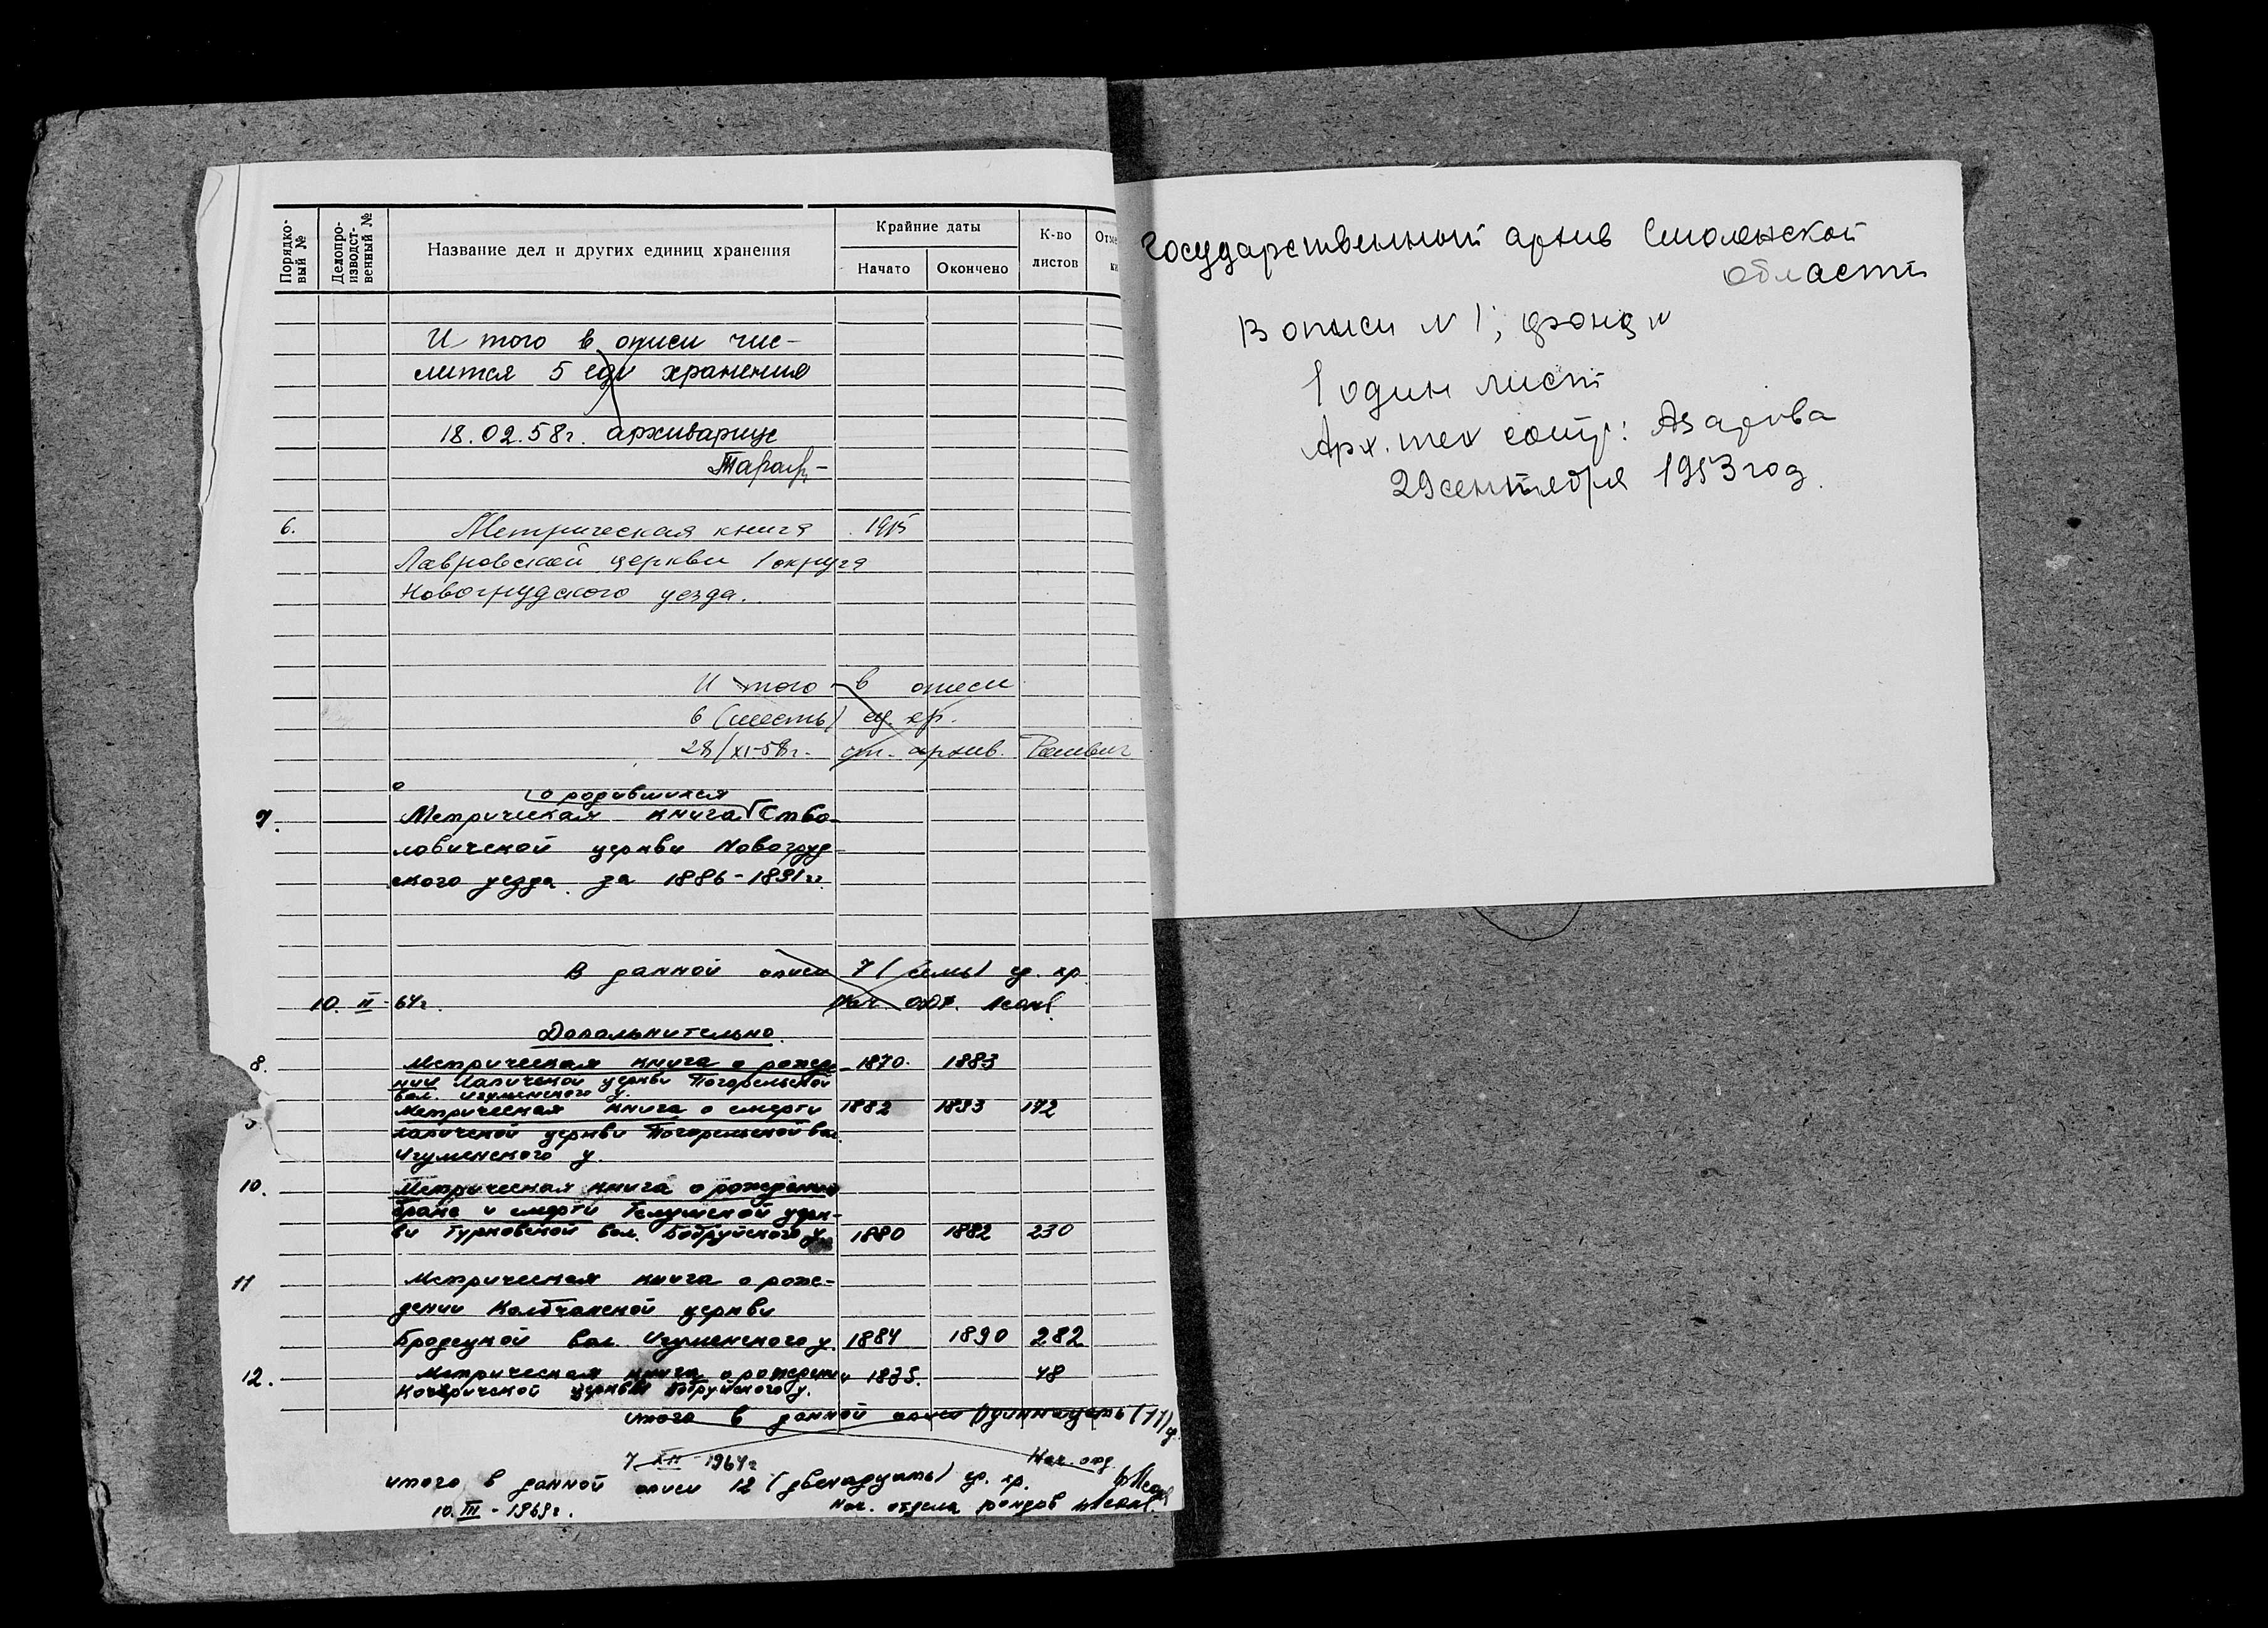 Порядко-
вый №
Делопро-
изводст-
венный №
Название дел и других единиц хранения
Крайние даты
Начато
Окончено
К-во
листов
И того в описи чис-
лится 5 ед. хранения
18.02.58г. архивариус
6. Метрическая книга 1915
Лавровской церкви 1 округа
Новогрудского уезда.
И того в описи
6 (шесть) ед. хр.
28/XI-58г. ст. архив.
о родившихся
7. Метрическая книга Ство-
ловичской церкви Новогруд-
ского уезда за 1886-1891гг.
В данной описи 7 (семь) ед. хр.
10. II-64г. Нач. отд.
Дополнительно
8. Метрическая книга о рожде- 1870. 1883
нии Лапичской церкви Погорельской
вол. Игуменского у.
Метрическая книга о смерти 1882 1893 172
Лапичской церкви Погорельской вол.
Игуменского у.
10. Метрическая книга о рождении
браке и смерти Телушской церк-
ви Турковской вол. Бобруйского у. 1880 1882 230
11 Метрическая книга о рож-
дении Колбчанской церкви
Бродецкой вол. Игуменского у. 1884 1890 282
12. Метрическая книга о рождении 1835. 48
Кочеричской церкви Бобруйского у.
итого в данной описи одиннадцать (11) ед.
7 XII-1964г Нач. отд.
итого в данной описи 12 (двенадцать) ед. хр.
10. III-1969г. Нач. отдела фондов
Государственный архив Смоленской
области
В описи N 1; фонд N
1 один лист
Арх. тех сотр: Азарова
29 сентября 1953 год.